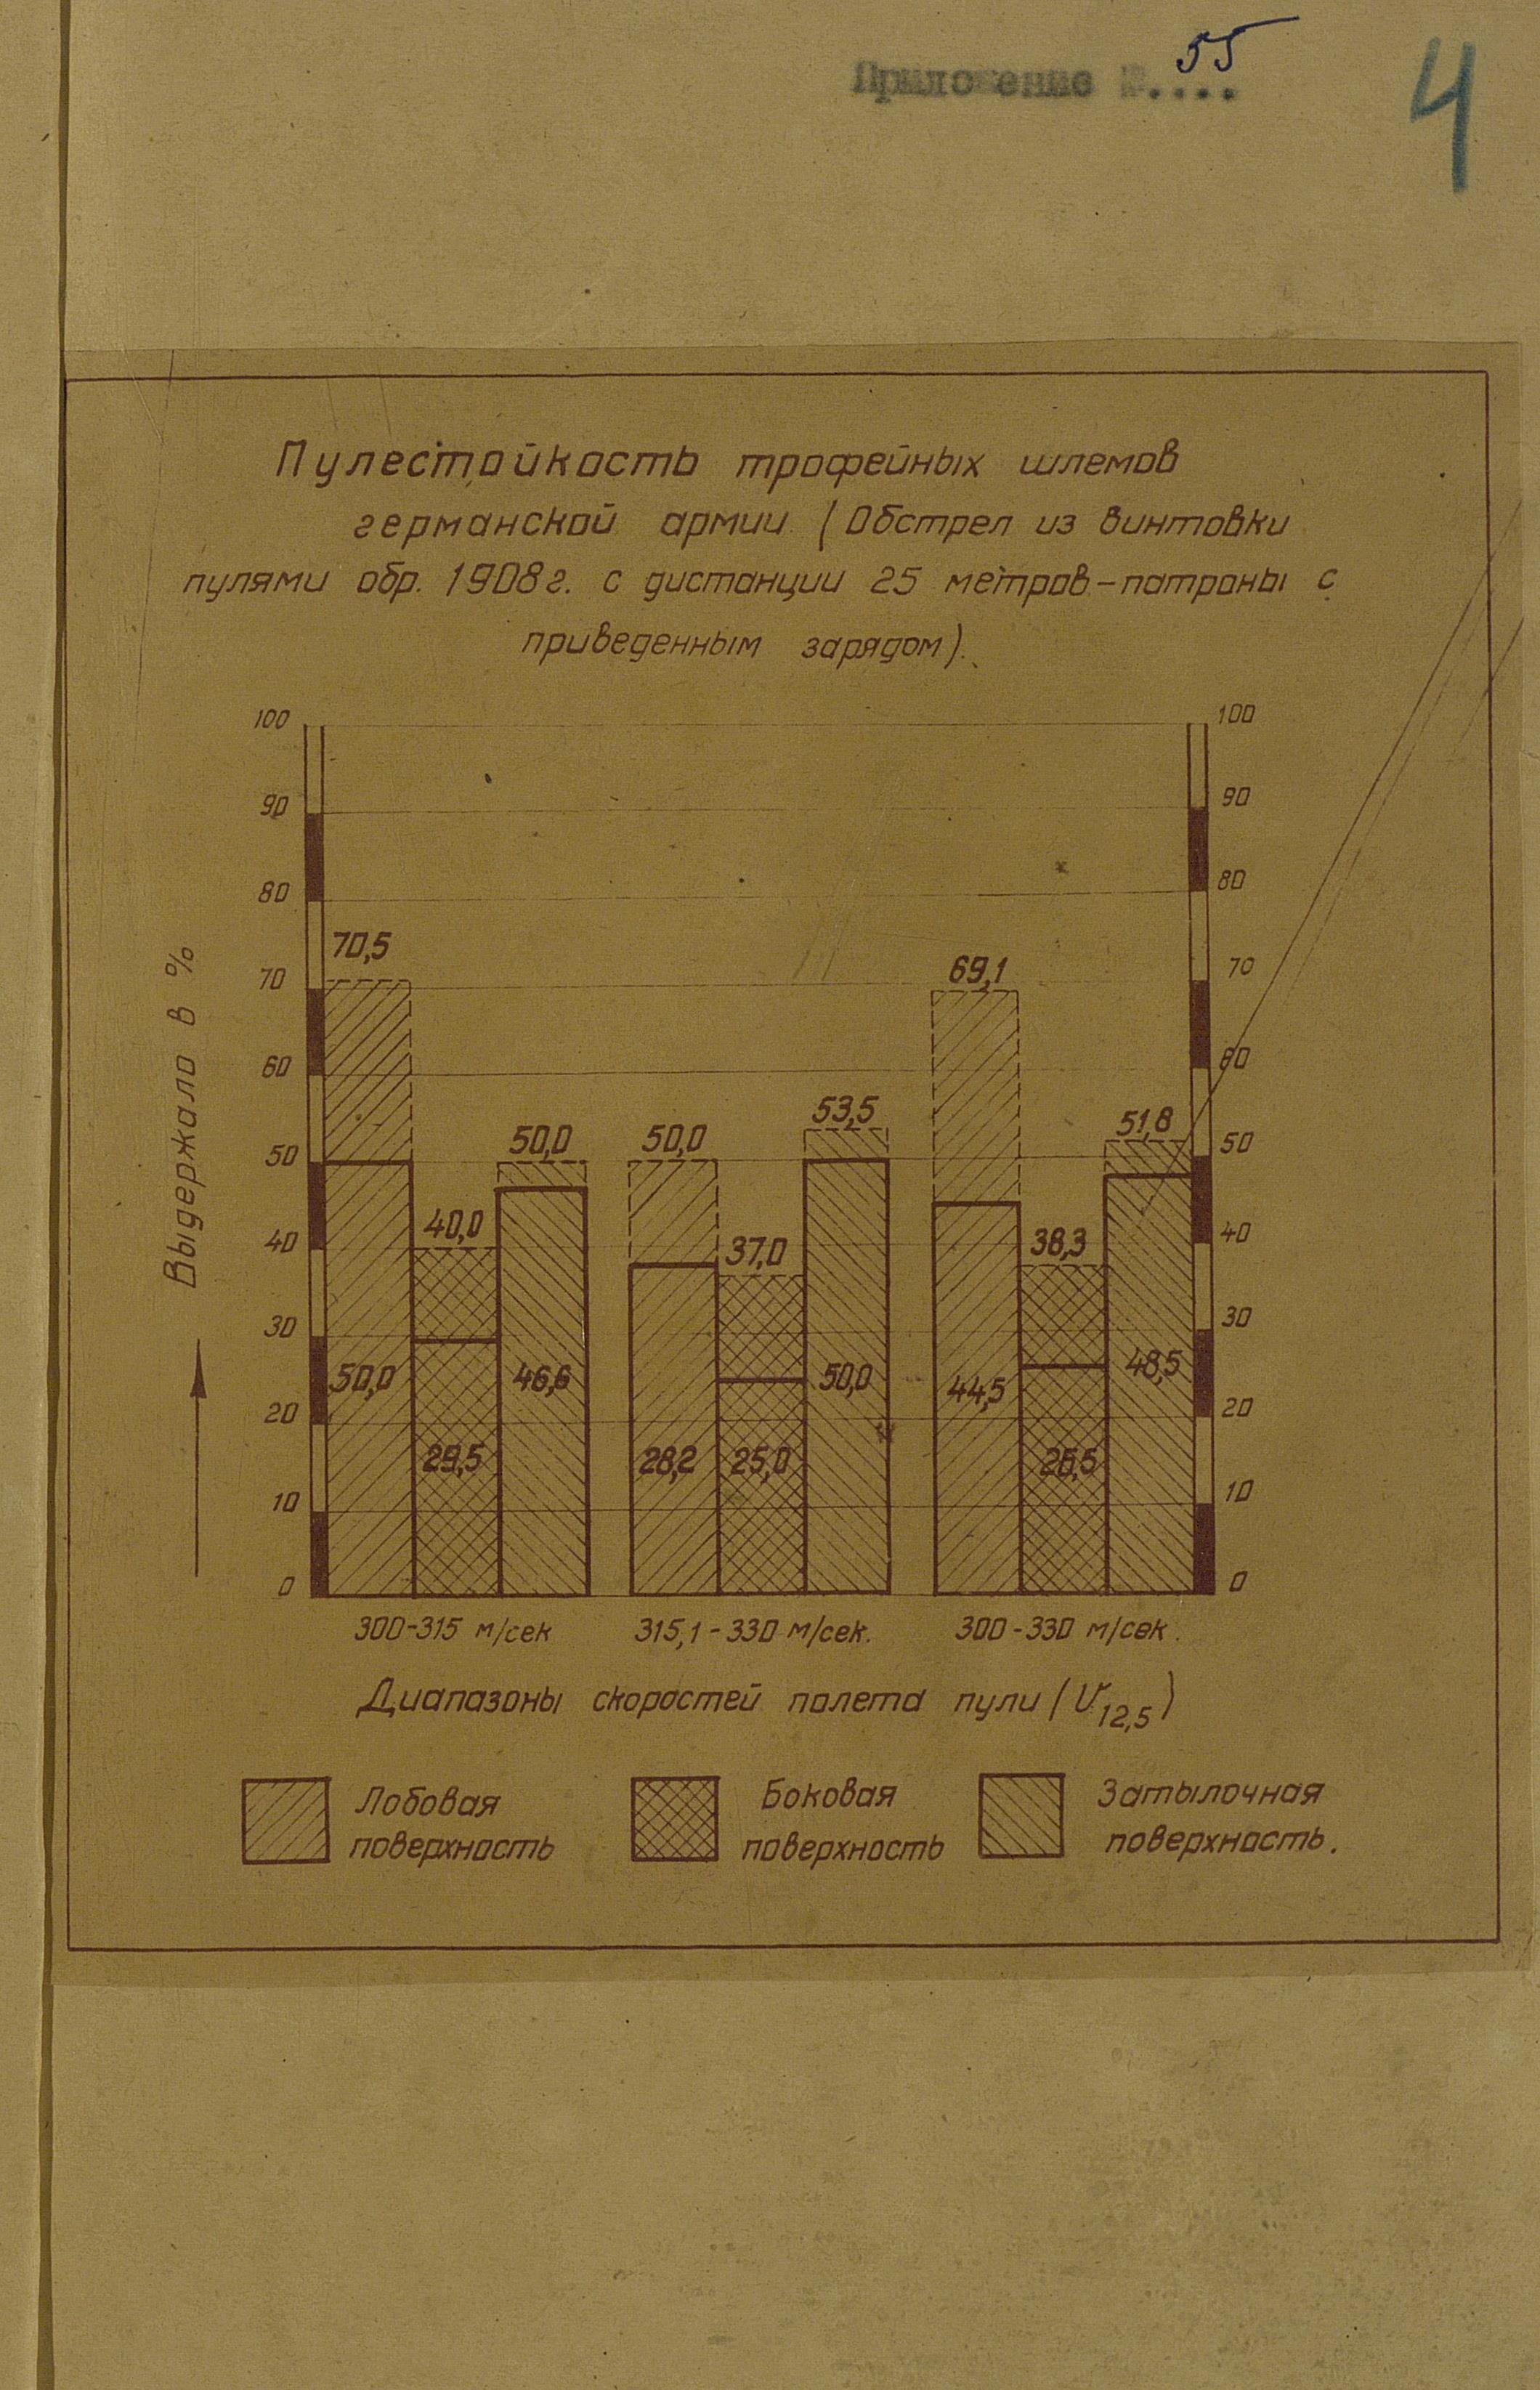 Приложение №....
55
4
Пулестойкость трофейных шлемов
германской армии (Обстрел из винтовки
пулями обр. 1908г. с дистанции 25 метров-патроны с
приведенным зарядом).
100 100
90 90
80 80
70,5
70 70
69,1
60 60
53,5
51,8
50,0 50,0
50 50
40,0
37,0
38,3
40 40
30 30
50,0 46,6 50,0 44,5 48,5
20 20
29,5 28,2 25,0 26,5
10 10
0 0
Выдержало в %
300-315 м/сек 315,1-330 м/сек. 300-330 м/сек.
Диапазоны скоростей полета пули (V12,5)
Лобовая
поверхность
Боковая
поверхность
Затылочная
поверхность.